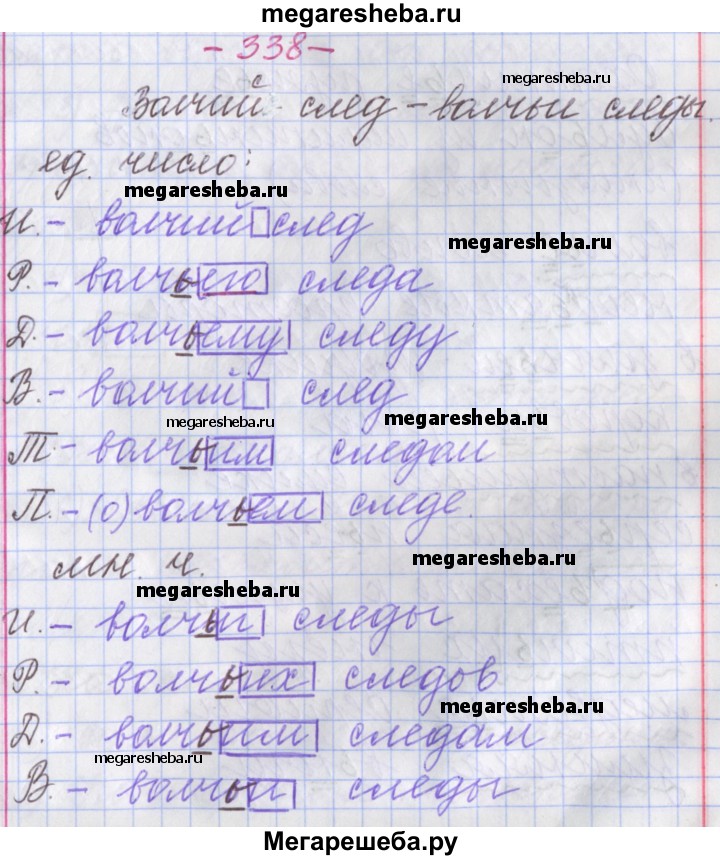 megaresheba.ru
- 338 -
megaresheba.ru
с
Волчий след - волчьи следы.
ед. число:
megaresheba.ru
И. - волчий след
megaresheba.ru
Р. - волчьего следа
megaresheba.ru
Д. - волчьему следу
В. - волчий след
megaresheba.ru
megaresheba.ru
Т. - волчьим следом
П. - (о) волчьем следе.
megaresheba.ru
мн. ч.
megaresheba.ru
И. - волчьи следы
Р. - волчьих следов
megaresheba.ru
Д. - волчьим следам
megaresheba.ru
В. - волчьи следы
megaresheba.ru
Мегарешеба.ру